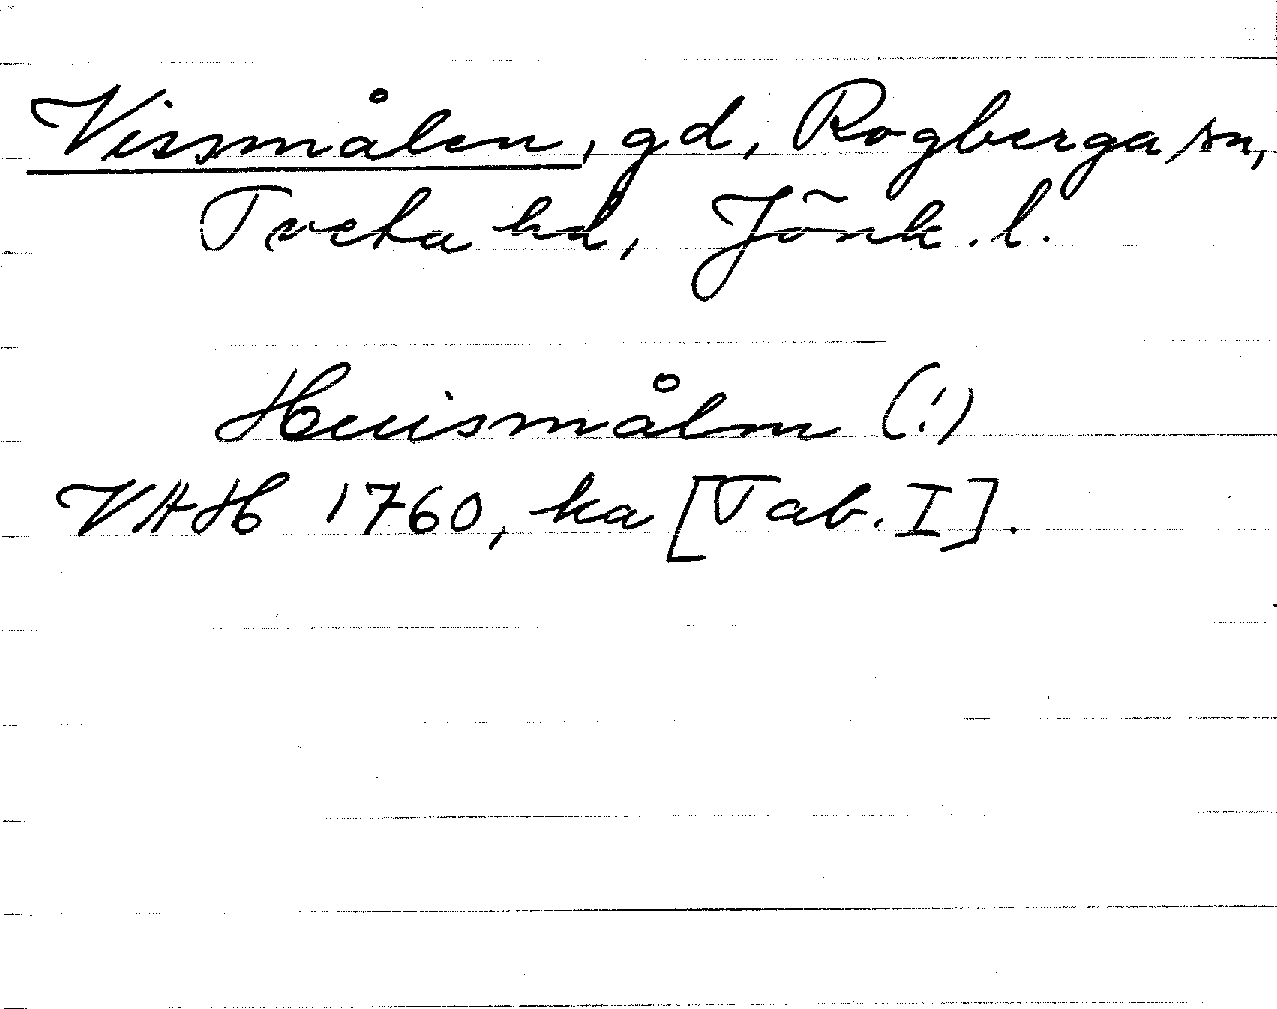 Vissmålen, gd, Rogberga sn,
Tveta hd, Jönk. l.
Huismålm (!)
VAH 1760, ka [Tab. I].